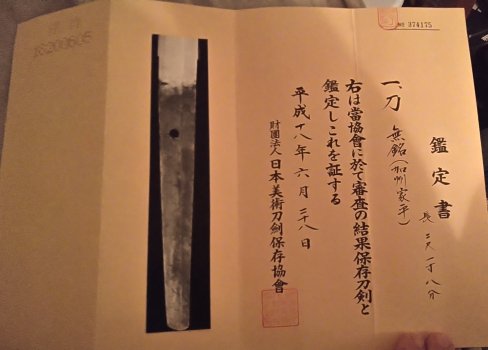 No 374175
鑑定書
一、刀 無銘(加州家平)
長 二尺一寸八分
右は當協會に於て審査の結果保存刀剣と
鑑定しこれを証する
平成十八年六月二十八日
財團法人 日本美術刀劍保存協會